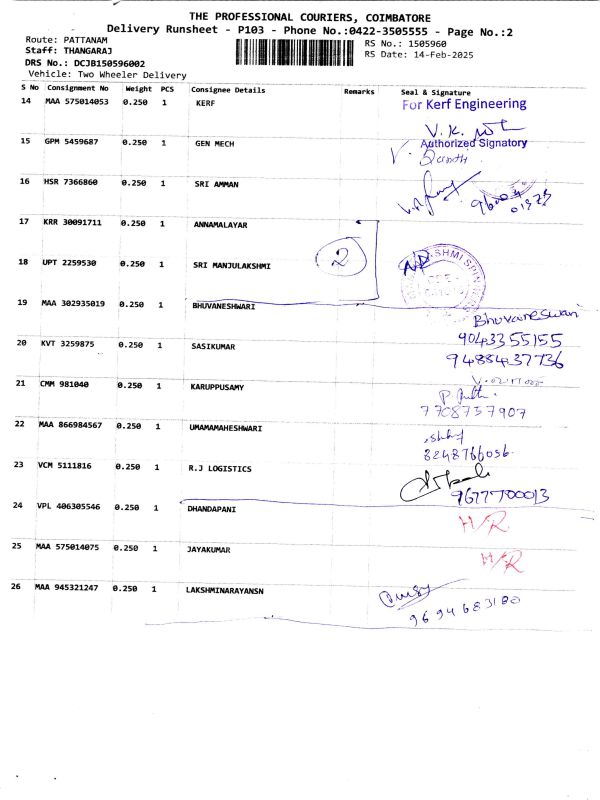 THE PROFESSIONAL COURIERS, COIMBATORE
Delivery Runsheet - P103 - Phone No.:0422-3505555 - Page No.:2
Route: PATTANAM
RS No.: 1505960
Staff: THANGARAJ
RS Date: 14-Feb-2025
DRS No.: DCJB150596002
Vehicle: Two Wheeler Delivery
S No Consignment No Weight PCS Consignee Details Remarks Seal & Signature
14 MAA 575014053 0.250 1 KERF For Kerf Engineering
Authorized Signatory
15 GPM 5459687 0.250 1 GEN MECH
16 HSR 7366860 0.250 1 SRI AMMAN
17 KRR 30091711 0.250 1 ANNAMALAYAR
2
18 UPT 2259530 0.250 1 SRI MANJULAKSHMI
19 MAA 302935019 0.250 1 BHUVANESHWARI Bhuvaneswari
9043355155
20 KVT 3259875 0.250 1 SASIKUMAR 9488437736
21 CMM 981040 0.250 1 KARUPPUSAMY
7708757907
22 MAA 866984567 0.250 1 UMAMAMAHESHWARI
8248766056
23 VCM 5111816 0.250 1 R.J LOGISTICS
9677700013
24 VPL 406305546 0.250 1 DHANDAPANI H/R
25 MAA 575014075 0.250 1 JAYAKUMAR H/R
26 MAA 945321247 0.250 1 LAKSHMINARAYANSN
9694683180